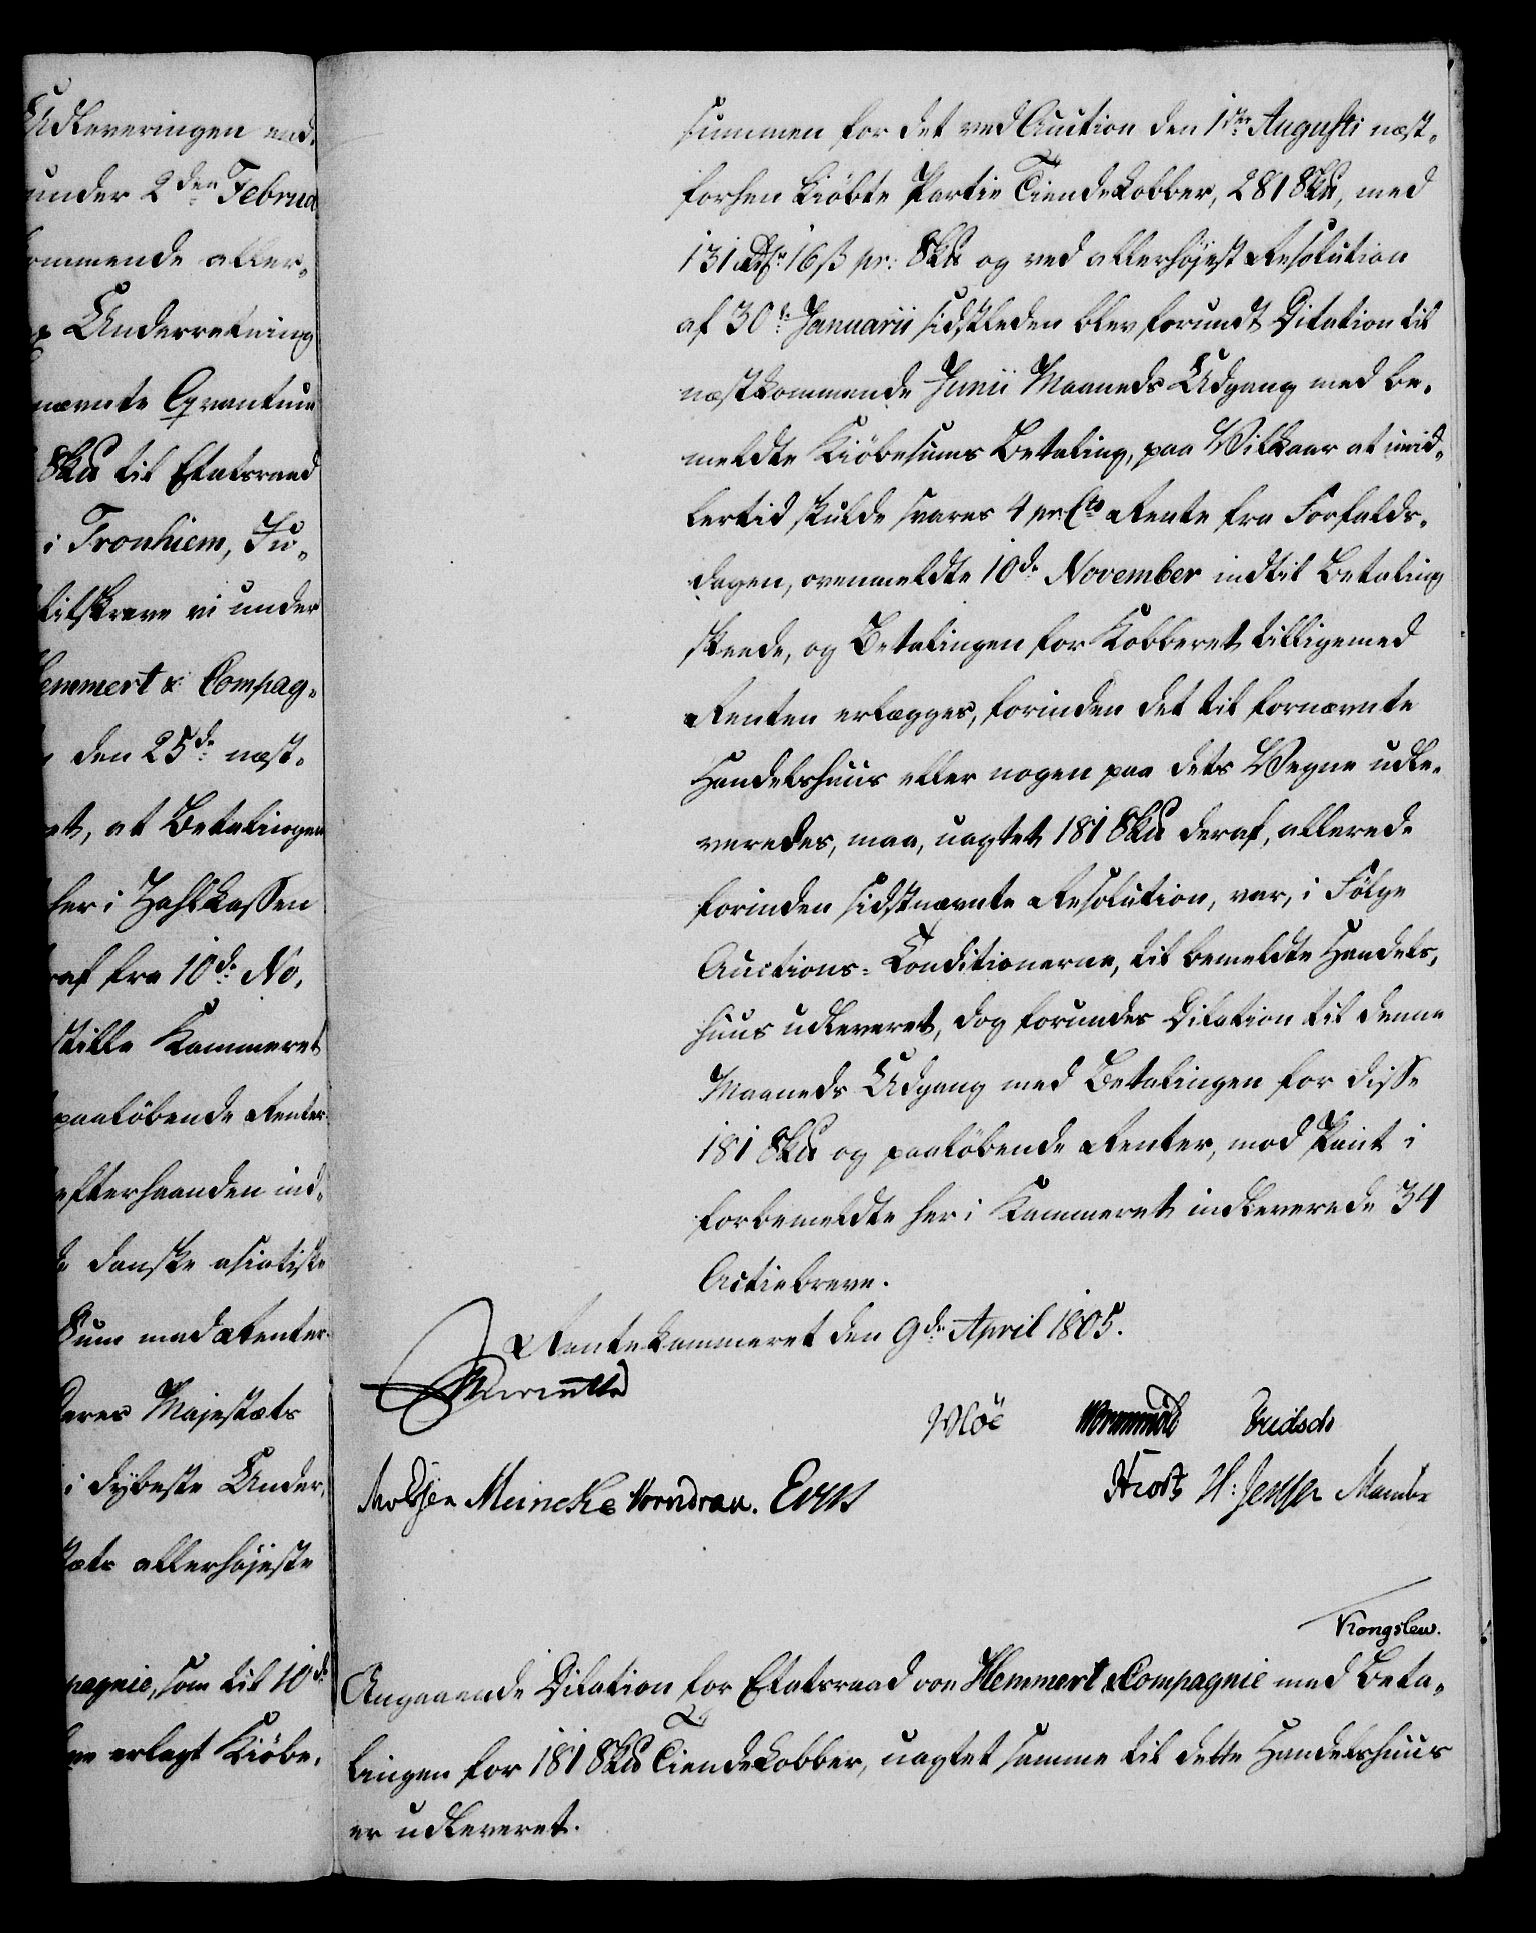 Udleveringen end-
under 2den Februar
kommende aller-
Underretning
nævnte Qvantum
Sk℔ til Etatsraad
i Tronhiem, Ju-
tilskreve vi under
Hemmert & Compag-
den 25de næst-
et, at Betalingen
her i Zahlkassen
af fra 10de No-
stille Kammeret
paaløbende Renter
efterhaanden ind-
danske asiatiske
Sum med Renter
Deres Majestæts
i dybeste Under-
stæts allerhøjeste
pagnie, som til 10de
erlagt Kiøbe-
summen for det ved Auction den 1ste Augusti næst-
forhen kiøbte Partie Tiendekobber, 281 Sk℔, med
131 Rdlr 16 ß pr: Sk℔ og ved allerhøjest Resolution
af 30de Januarii sidstleden blev forundt Dilation til
næstkommende Junii Maaneds Udgang med be-
meldte Kiøbesums Betaling, paa Vilkaar at imid-
lertid skulde svares 4 prCto Rente fra Forfalds-
dagen, ovenmeldte 10de November indtil Betaling
skeede, og Betalingen for Kobberet tilligemed
Renten erlægges, forinden det til fornævnte
Handelshuus eller nogen paa dets Vegne udle-
veredes, maa, uagtet 181 Sk℔ deraf, allerede
forinden sidstnævnte Resolution, var, i Følge
Auctions-Conditionerne, til bemeldte Handels-
huus udleveret, dog forundes Dilation til denne
Maaneds Udgang med Betalingen for disse
181 Sk℔ og paaløbende Renter, mod Pant i
forbemeldte her i Kammeret indleverede 34
Actiebreve.
Rentekammeret den 9de April 1805.
Reventlow
Moe Wormskiold Fridsch
Meincke Vorndran.
Hiort H: Jensen
Kongslew.
Angaaende Dilation for Etatsraad von Hemmert & Compagnie med Beta-
lingen for 181 Sk℔ Tiendekobber, uagtet samme til dette Handelshuus
er udleveret.